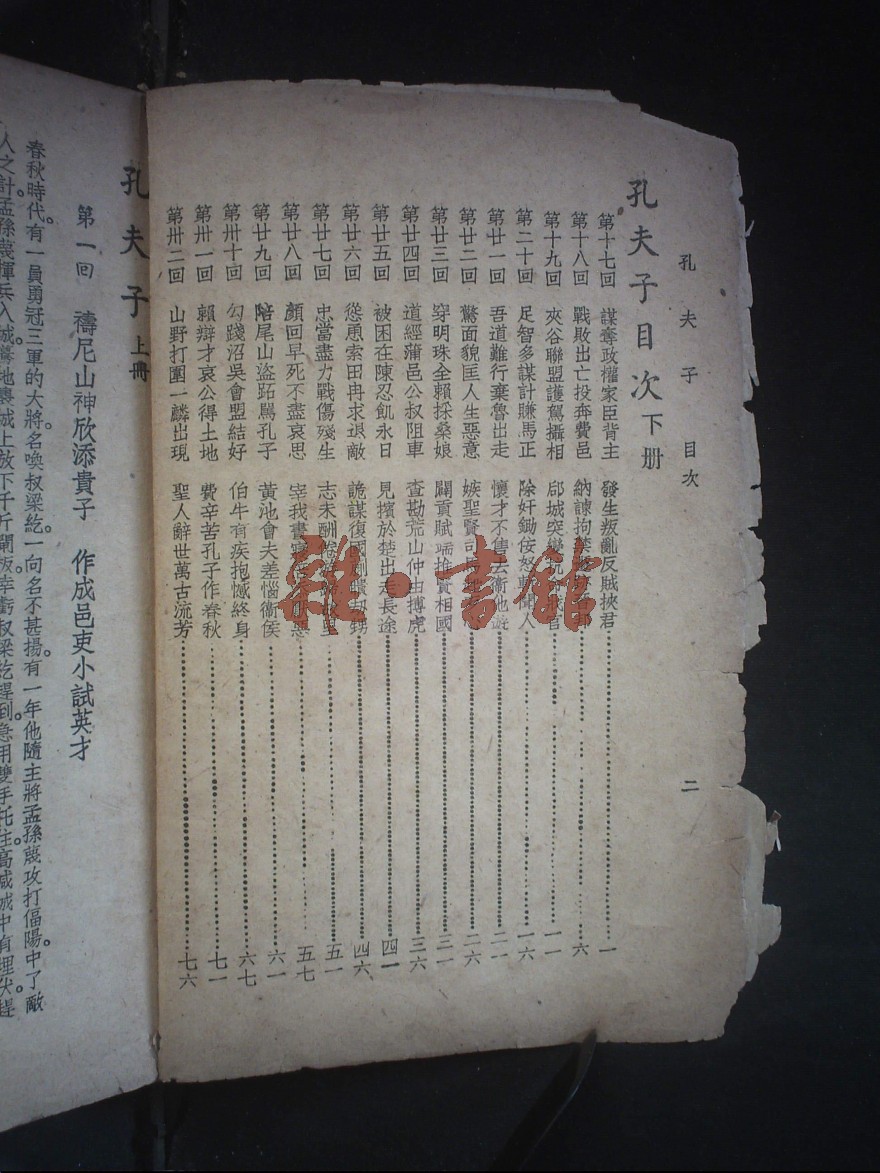 孔夫子 目次 二
孔夫子目次 下册
第十七回 謀奪政權家臣背主 發生叛亂反賊挾君 一
第十八回 戰敗出亡投奔費邑 納諫拘禁 六
第十九回 夾谷聯盟護駕攝相 郈城突變 一一
第二十回 足智多謀計賺馬正 除奸鋤佞怒斬聞人 一六
第廿一回 吾道難行棄魯出走 懷才不售去衞他遊 二一
第廿二回 驚面貌匡人生惡意 嫉聖賢司馬 二六
第廿三回 穿明珠全賴採桑娘 闢貢賦端推賢相國 三一
第廿四回 道經蒲邑公叔阻車 查勘荒山仲由搏虎 三六
第廿五回 被困在陳忍飢永日 見擯於楚出走長途 四一
第廿六回 慫恿索田冉求退敵 詭謀復國蒯聵刧甥 四六
第廿七回 忠當盡力戰傷殘生 志未酬倦 里 五一
第廿八回 顏回早死不盡哀思 宰我晝寢 惡 五七
第廿九回 陪尾山盜跖罵孔子 黃池會夫差惱衞侯 六一
第卅十回 勾踐沼吳會盟結好 伯牛有疾抱憾終身 六七
第卅一回 賴辯才哀公得土地 費辛苦孔子作春秋 七一
第卅二回 山野打圍一麟出現 聖人辭世萬古流芳 七六
雜·書館
孔夫子 上冊
第一回 禱尼山神欣添貴子 作成邑吏小試英才
春秋時代。有一員勇冠三軍的大將。名喚叔梁紇。一向名不甚揚。有一年他隨主將孟孫蔑攻打偪陽。中了敵
人之計。孟孫蔑揮兵入城。驀地裏城上放下千斤閘板。幸虧叔梁紇趕到。急用雙手托住。高喊城中有埋伏。趕